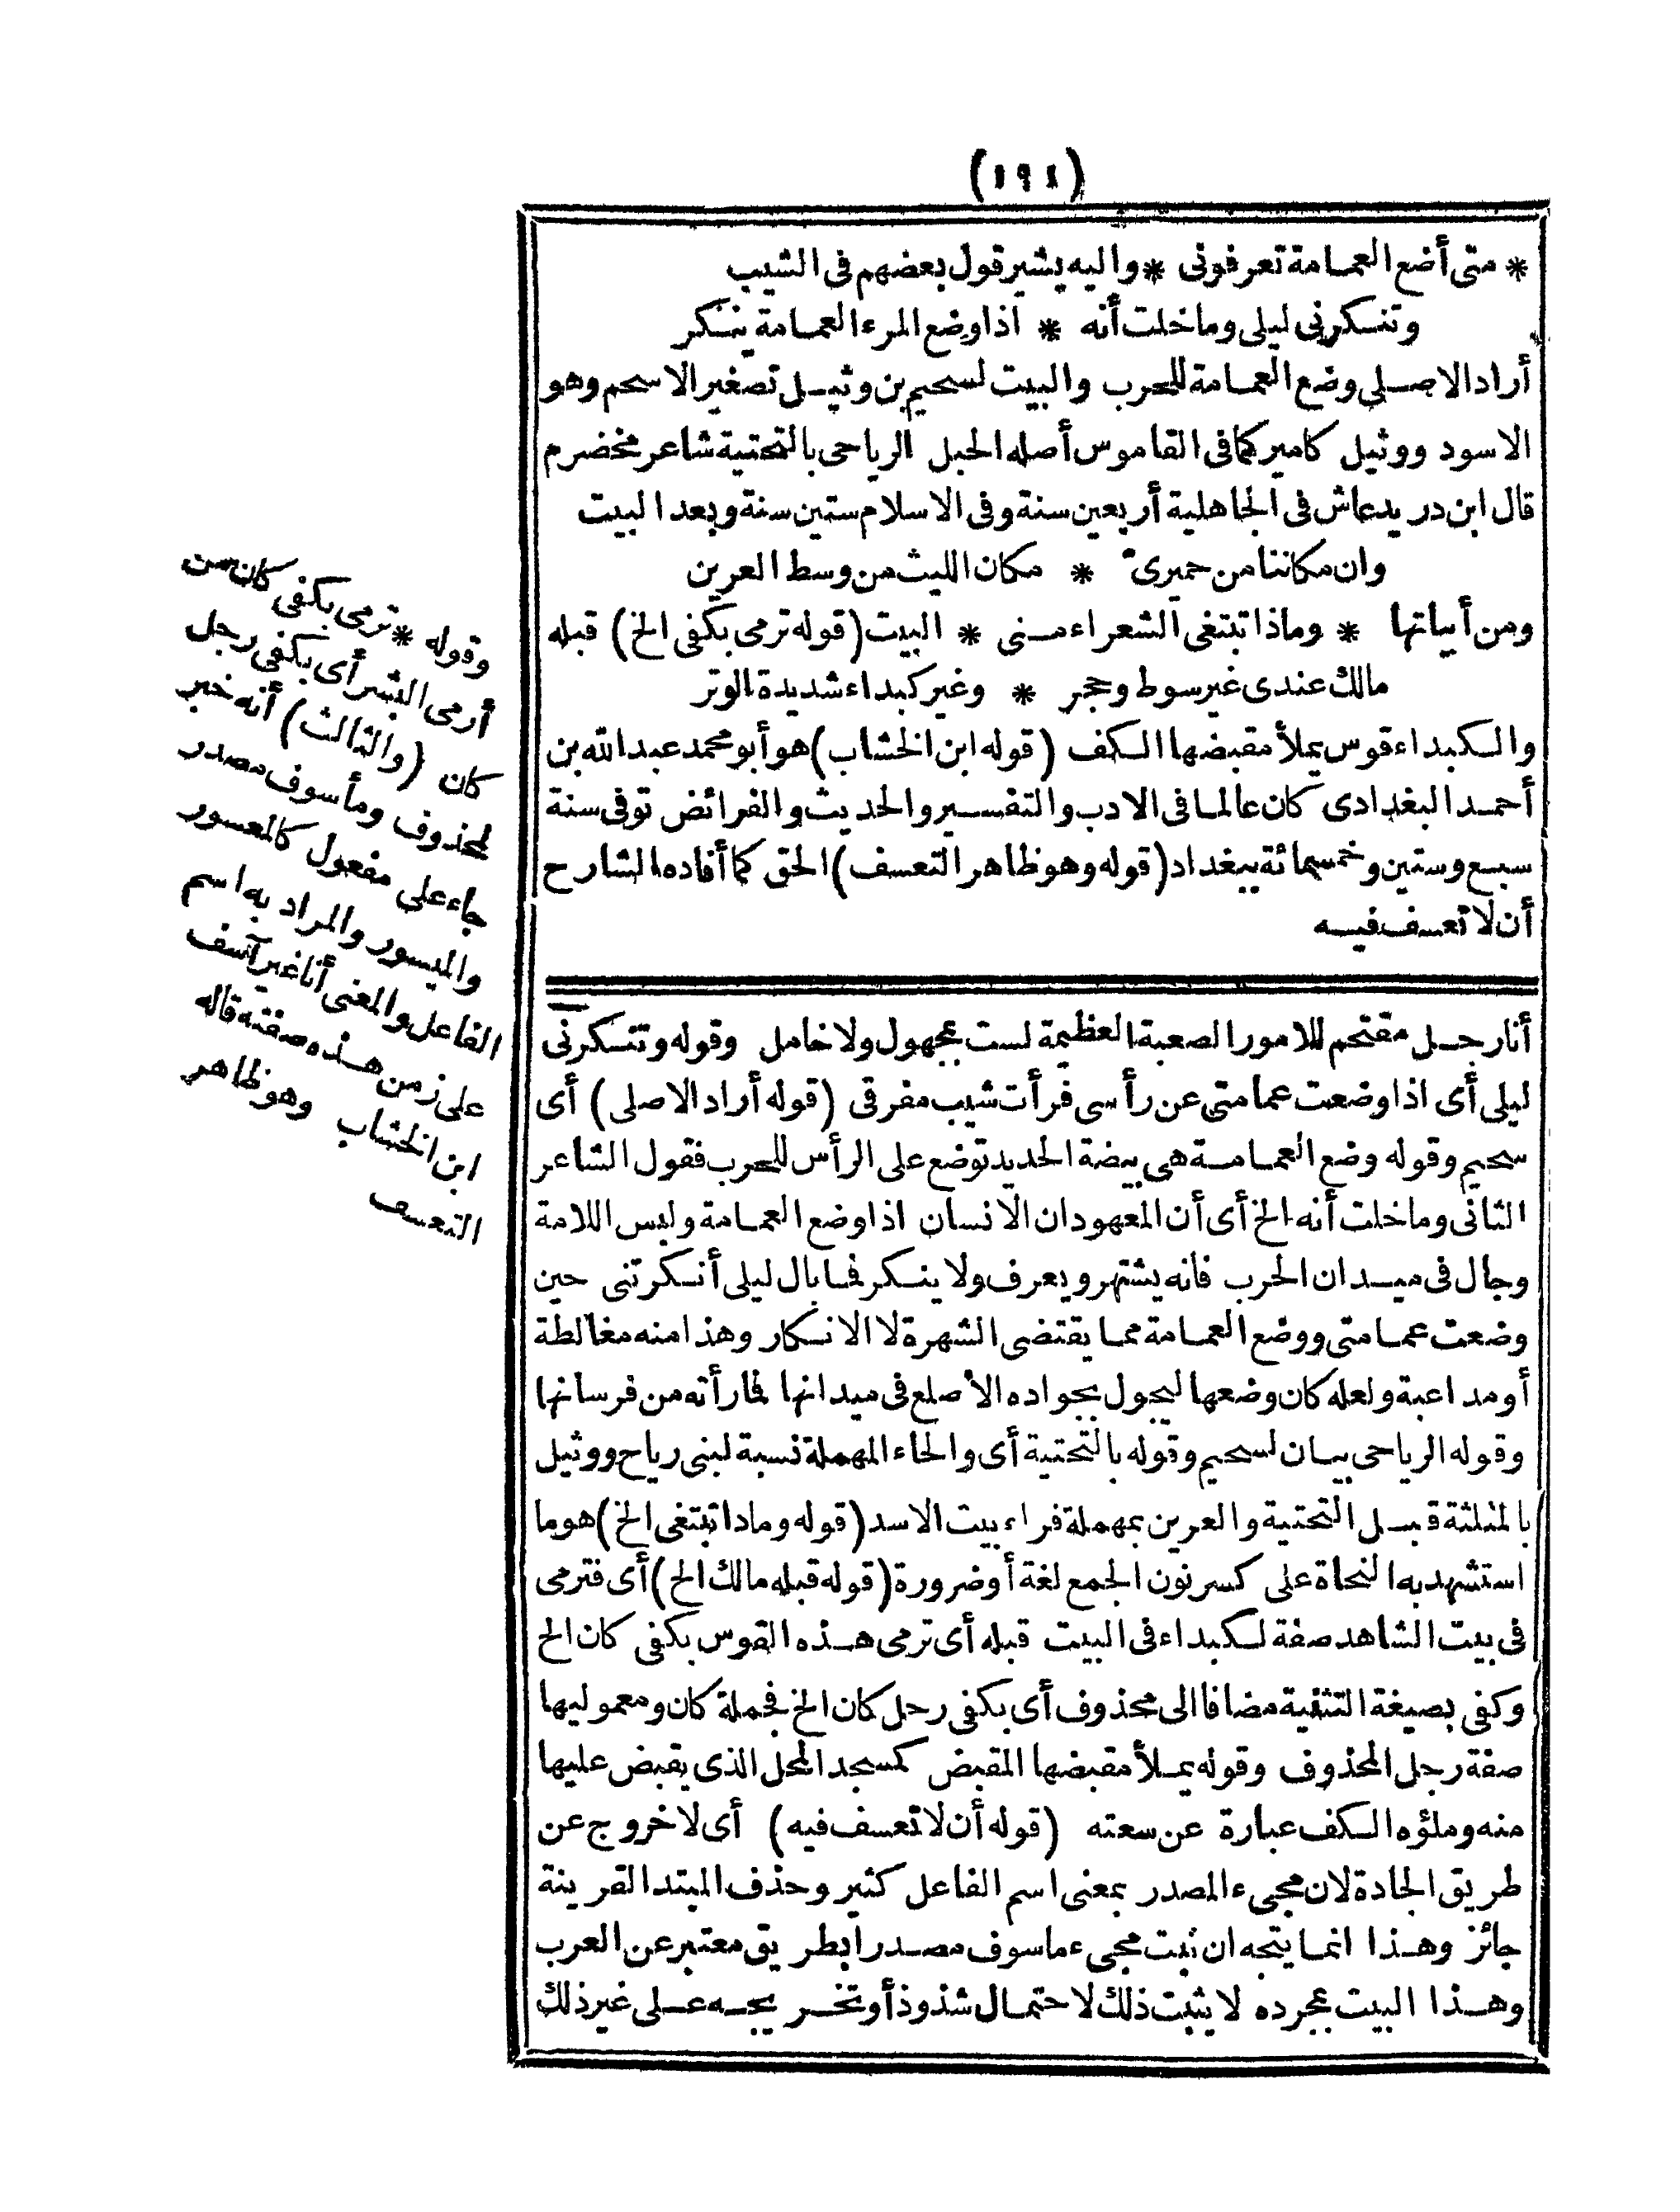 (١٩١)
* متى أضع العمامة تعرفونى * واليه يشير قول بعضهم فى الشيب
وتنكرنى ليلى وما خلت أنه * اذا وضع المرء العمامة ينكر
أراد الاصلى وضع العمامة للحرب والبيت لسحيم بن وثيل تصغير الاسحم وهو
الاسود ووثيل كامير كما فى القاموس أصله الحبل الرياحى بالتحتية شاعر مخضرم
قال ابن دريد عاش فى الجاهلية أربعين سنة وفى الاسلام ستين سنة وبعد البيت
وان مكاننا من حميرى * مكان الليث من وسط العرين
ومن أبياتها * وماذا تبتغى الشعراء منى * البيت (قوله ترمى بكفى الخ) قبله
مالك عندى غير سوط وحجر * وغير كبداء شديدة الوتر
والكبداء قوس يملأ مقبضها الكف (قوله ابن الخشاب) هو أبو محمد عبد الله بن
أحمد البغدادى كان عالما فى الادب والتفسير والحديث والفرائض توفى سنة
سبع وستين وخمسمائة ببغداد (قوله وهو ظاهر التعسف) الحق كما أفاده الشارح
أن لا تعسف فيه
وقوله * ترمى بكفى كان من
أرمى البشر أى بكفى رجل
كان (والثالث) أنه خبر
لمحذوف ومأسوف مصدر
جاء على مفعول كالمعسور
والميسور والمراد به اسم
الفاعل والمعنى أنا غير آسف
على زمن هذه صفته قاله
ابن الخشاب وهو ظاهر
التعسف
أنا رجل مقتحم للامور الصعبة العظيمة لست بمجهول ولا خامل وقوله وتنكرنى
ليلى أى اذا وضعت عمامتى عن رأسى فرأت شيب مفرقى (قوله أراد الاصلى) أى
سحيم وقوله وضع العمامة هى بيضة الحديد توضع على الرأس للحرب فقول الشاعر
الثانى وما خلت أنه الخ أى أن المعهود ان الانسان اذا وضع العمامة ولبس اللامة
وجال فى ميدان الحرب فانه يشتهر ويعرف ولا ينكر فما بال ليلى أنكرتنى حين
وضعت عمامتى ووضع العمامة مما يقتضى الشهرة لا الانكار وهذا منه مغالطة
أو مداعبة ولعله كان وضعها ليجول بجواده الأصلع فى ميدانها فما رأته من فرسانها
وقوله الرياحى بيان لسحيم وقوله بالتحتية أى والحاء المهملة نسبة لبنى رياح ووثيل
بالمثلثة قبل التحتية والعرين بمهملة فراء بيت الاسد (قوله وماذا تبتغى الخ) هو ما
استشهد به النحاة على كسر نون الجمع لغة أو ضرورة (قوله قبله مالك الخ) أى فترمى
فى بيت الشاهد صفة لكبداء فى البيت قبله أى ترمى هذه القوس بكفى كان الخ
وكفى بصيغة التثنية مضافا الى محذوف أى بكفى رجل كان الخ فجملة كان ومعموليها
صفة رجل المحذوف وقوله يملأ مقبضها المقبض كمسجد المحل الذى يقبض عليها
منه وملؤه الكف عبارة عن سعته (قوله أن لا تعسف فيه) أى لا خروج عن
طريق الجادة لان مجىء المصدر بمعنى اسم الفاعل كثير وحذف المبتدا لقرينة
جائز وهذا انما يتجه ان ثبت مجىء ماسوف مصدرا بطريق معتبر عن العرب
وهذا البيت بمجرده لا يثبت ذلك لاحتمال شذوذ أو تخريجه على غير ذلك